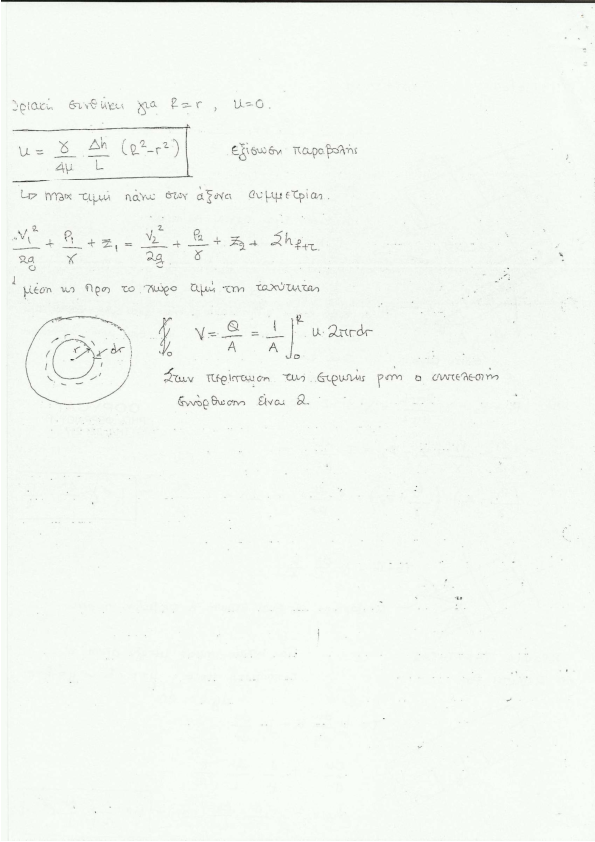 Οριακή συνθήκη για R=r, u=0.
u = γ/4μ Δh/L (R²-r²) εξίσωση παραβολής
↳ max τιμή πάνω στον άξονα συμμετρίας.
V₁²/2g + P₁/γ + z₁ = V₂²/2g + P₂/γ + z₂ + Σh_f+τ
μέση ως προς το χώρο τιμή της ταχύτητας
r dr
V = Q/A = 1/A ∫₀ᴿ u·2πrdr
Στην περίπτωση της στρωτής ροής ο συντελεστής
διόρθωσης είναι 2.